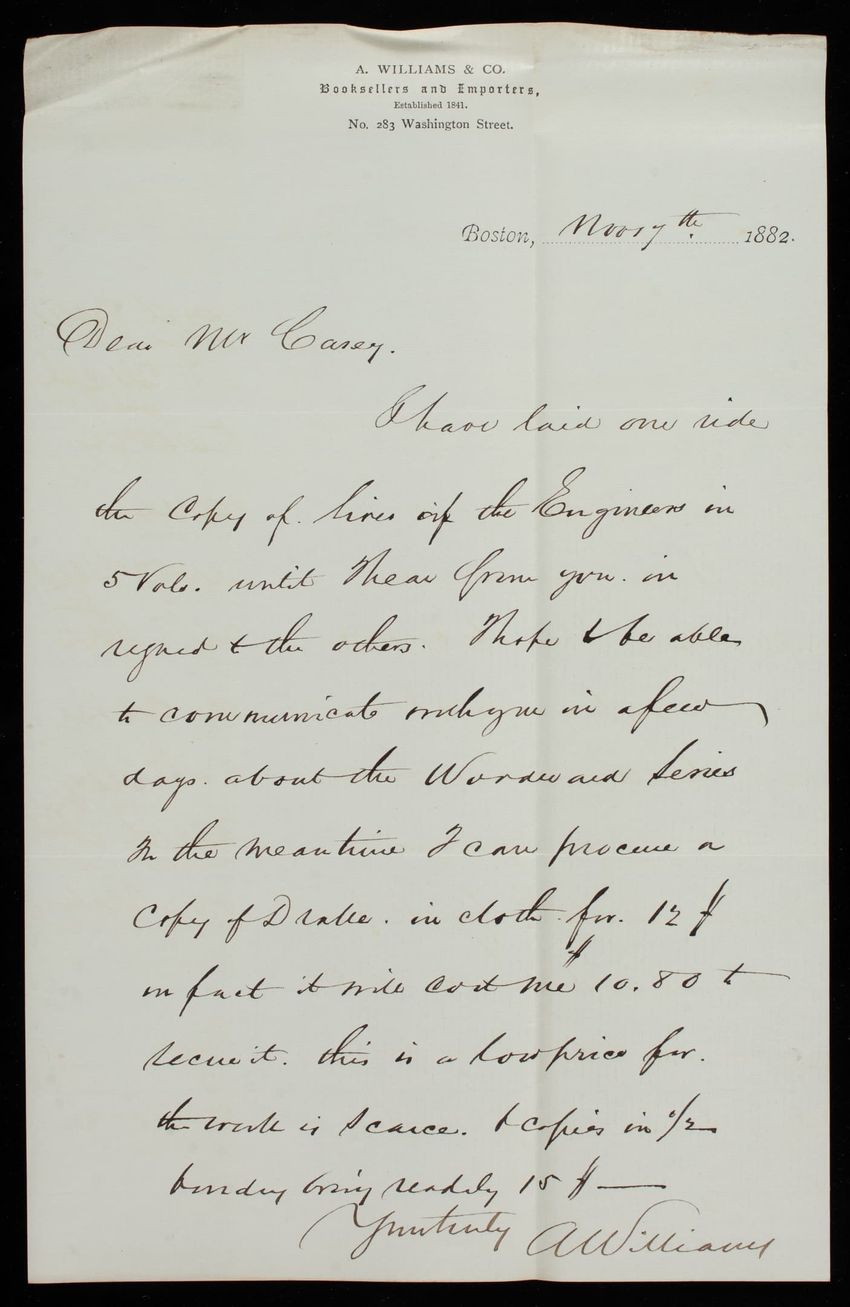 A. WILLIAMS & CO.
Booksellers and Importers,
Established 1841.
No. 283 Washington Street.
Boston, Nov 7th 1882.
Dear Mr Casey.
I have laid one side
the Copy of. Lives of the Engineers in
5 Vols. until I hear from you. in
regard to the others. I hope to be able
to communicate with you in a few
days. about the Woodward Series
In the meantime I can procure a
Copy of Drake. in cloth. for. 12 $
in fact it will cost me $ 10.80 to
secure it. this is a low price for.
the work is scarce. & copies in 1/2
binding bring readily 15 $
Yours truly A Williams